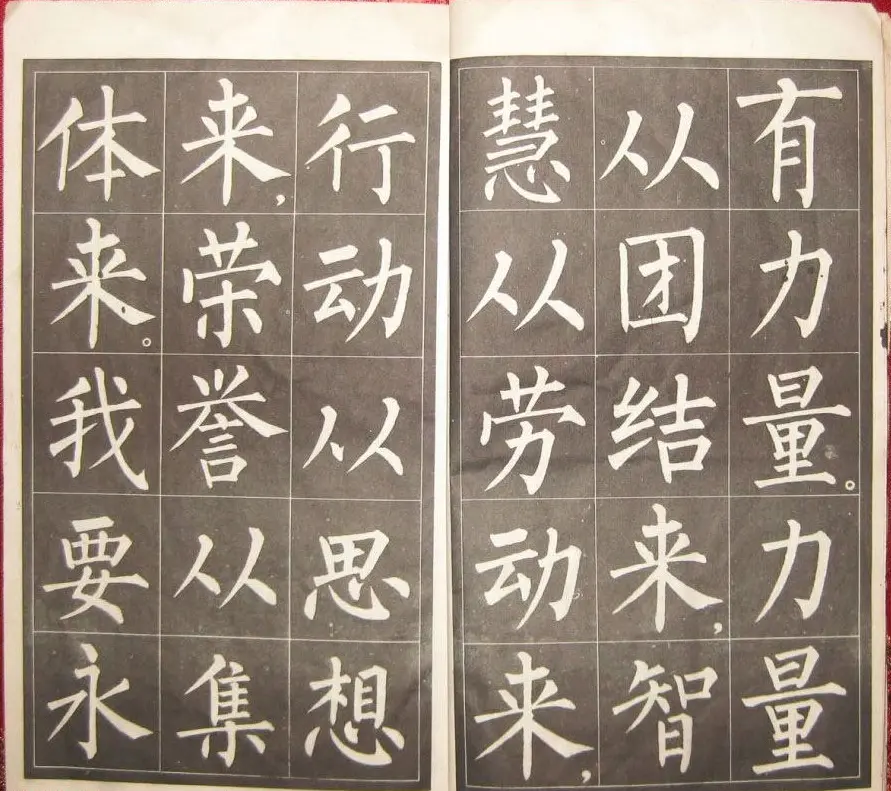 有力量。力量
从团结来，智
慧从劳动来，
行动从思想
来，荣誉从集
体来。我要永